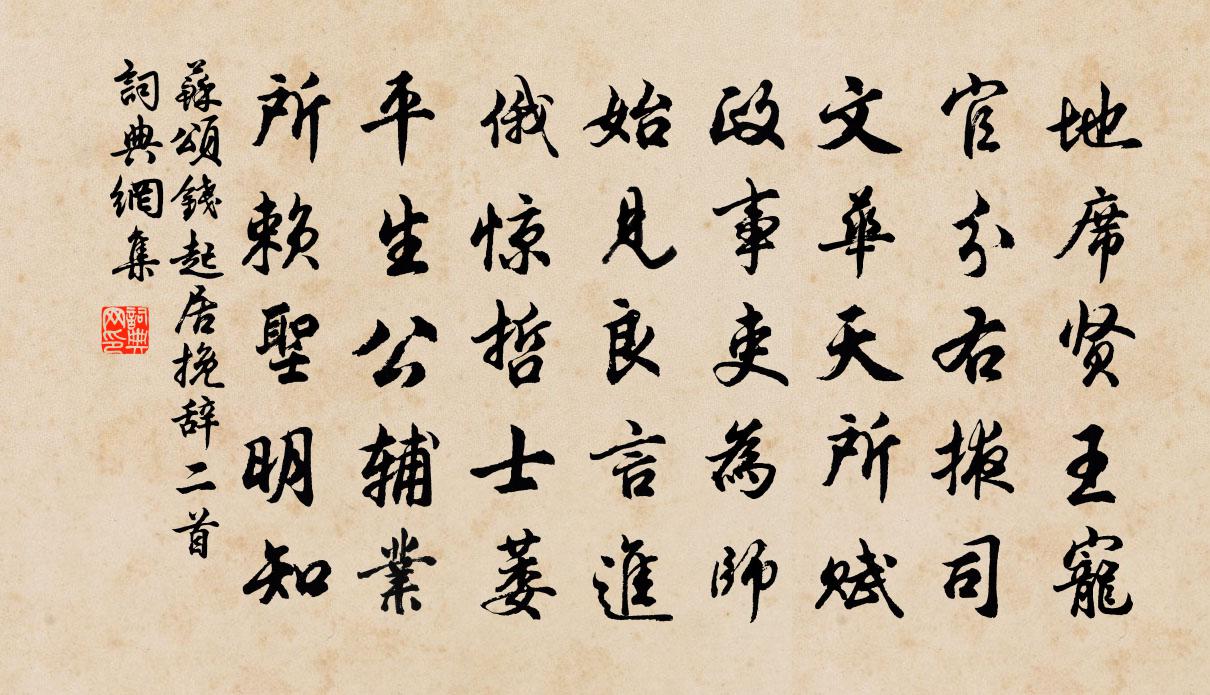 地席贤王寵
官分右掖司
文華天所赋
政事吏為師
始見良言進
俄惊哲士萎
平生公辅業
所赖聖明知
蘇頌錢起居挽辞二首
詞典網集
詞典网印